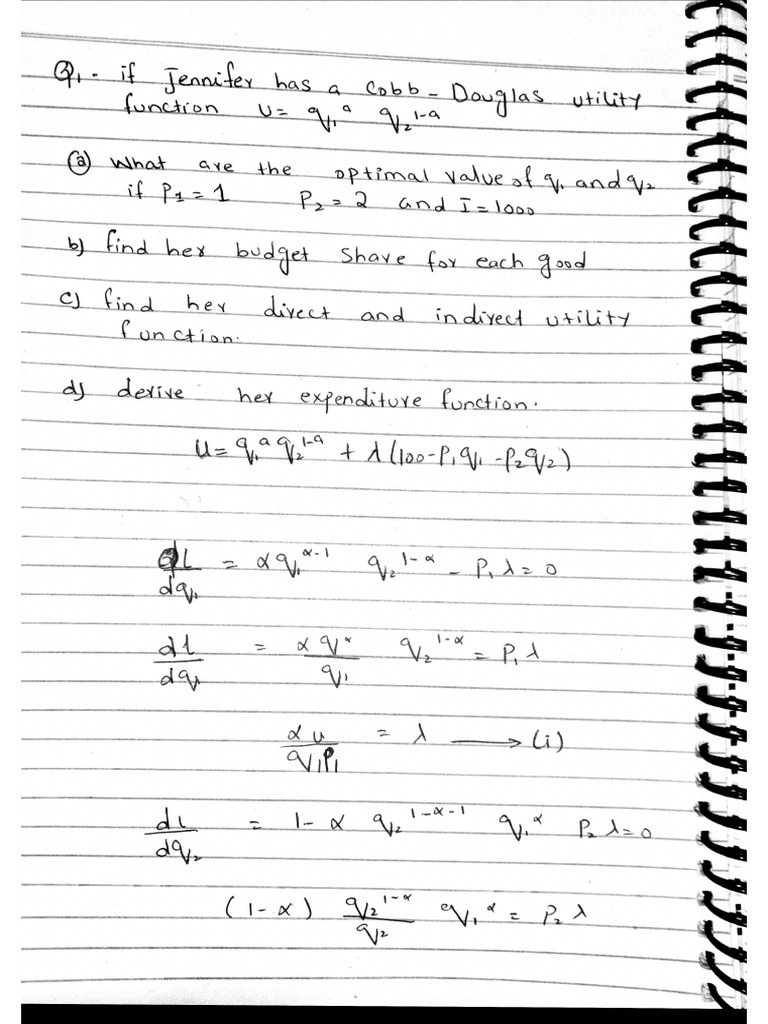 Q1. if Jennifer has a Cobb-Douglas utility
function U = q₁ᵃ q₂¹⁻ᵃ
(a) What are the optimal value of q₁ and q₂
if P1 = 1 P₂ = 2 and I = 1000
b) find her budget share for each good
c) find her direct and indirect utility
function.
d) derive her expenditure function.
U = q₁ᵃ q₂¹⁻ᵃ + λ(100 - P₁q₁ - P₂q₂)
dL/dq₁ = α q₁^(α-1) q₂^(1-α) - P₁ λ = 0
dL/dq₁ = α q^α/q₁ q₂^(1-α) = P₁ λ
α u/q₁P₁ = λ → (i)
dL/dq₂ = 1 - α q₂^(1-α-1) q₁^α P₂ λ = 0
(1-α) q₂^(1-α)/q₂ q₁^α = P₂ λ